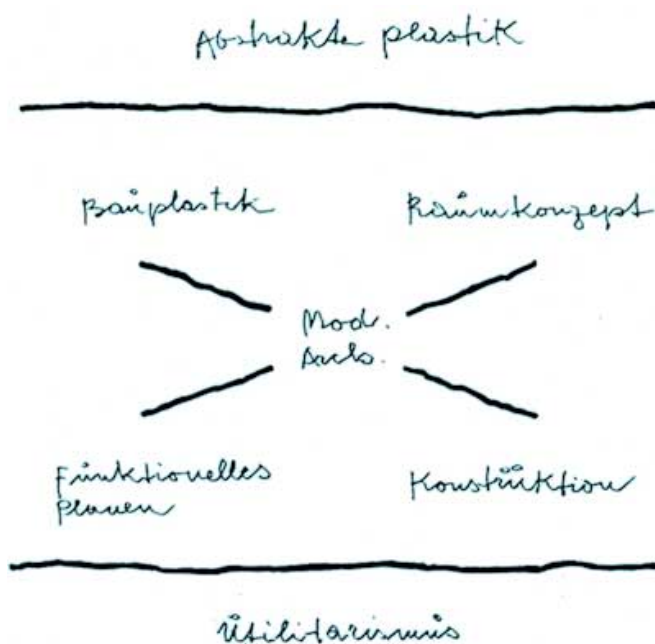 Abstrakte plastik
Bauplastik
Raumkonzept
Mod.
Arch.
Funktionelles
planen
Konstruktion
Utilitarismus